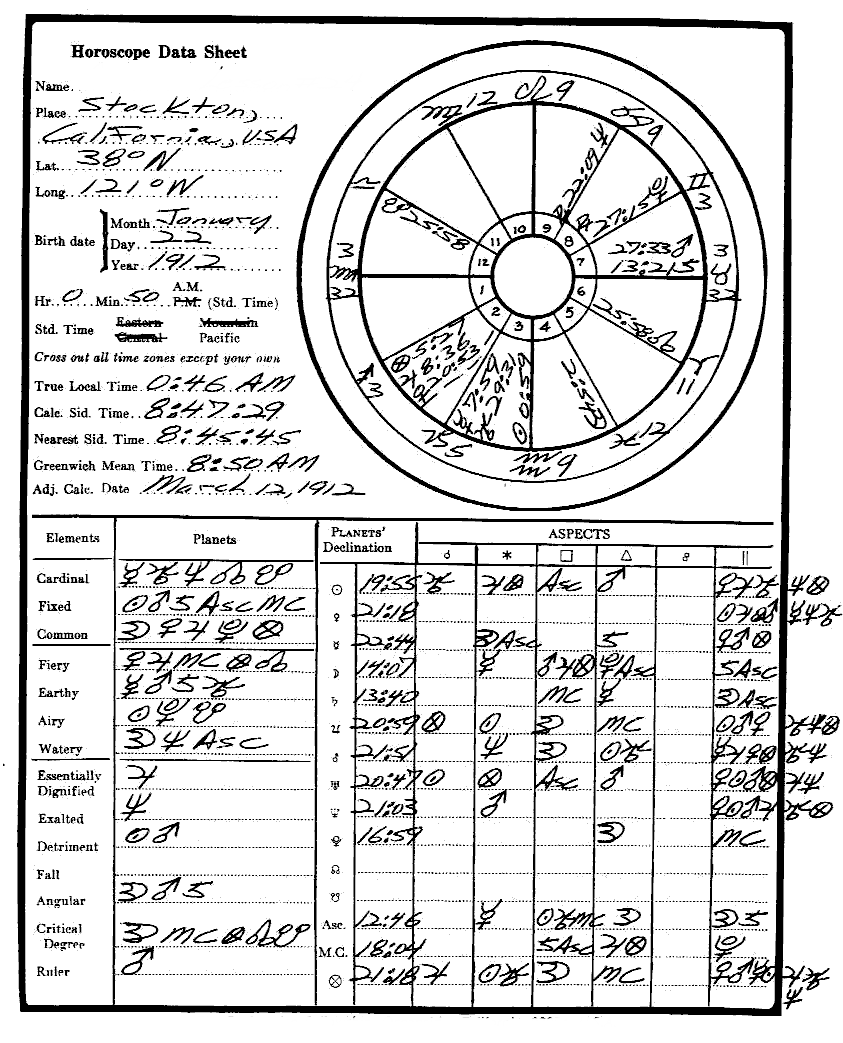 Horoscope Data Sheet
Name
Place Stockton,
California, USA
Lat. 38° N
Long. 121° W
Birth date
Month January
Day 22
Year 1912
A.M.
Hr. 0 Min. 50 P.M. (Std. Time)
Std. Time Eastern Mountain
Central Pacific
Cross out all time zones except your own
True Local Time 0:46 AM
Calc. Sid. Time 8:47:29
Nearest Sid. Time 8:45:45
Greenwich Mean Time 8:50 AM
Adj. Calc. Date March 12, 1912
♍ 12 ♌ 9 ♋ 9
♊ 3
22:09 ♆
27:15 ♇
27:33 ♂
13:21 ♄
25:58
25:58
2:54
1 2 3 4 5 6 7 8 9 10 11 12
Elements Planets PLANETS' Declination ASPECTS
☌ ✶ □ △ ☍ ||
Cardinal ☿ ♅ ♆ ☊ ☋
Fixed ☉ ♂ ♄ Asc MC
Common ☽ ♀ ♃ ♇ ⊗
Fiery ♀ ♃ MC ⊗ ☊
Earthy ☿ ♂ ♄ ♅
Airy ☉ ♇ ☋
Watery ☽ ♆ Asc
Essentially Dignified ♃
Exalted ♆
Detriment ☉ ♂
Fall
Angular ☽ ♂ ♄
Critical Degree ☽ MC ⊗ ☊ ☋
Ruler ♂
☉ 19:55 ♅ ♃ ⊗ Asc ♂
♀ 21:18
☿ 22:44 ☽ Asc ♄ ♀ ♂ ⊗
☽ 14:07 ☿ ♂ ♃ ⊗ ♇ Asc ♄ Asc
♄ 13:40 MC ☿ ☽ Asc
♃ 20:59 ⊗ ☉ ☽ MC
♂ 21:51 ♆ ☽ ☉ ♅
♅ 20:47 ☉ ⊗ Asc ♂
♆ 21:03 ♂
♇ 16:59 ☽ MC
☊
☋
Asc. 12:46 ☿ ☉ ♅ MC ☽ ☽ ♄
M.C. 18:04 ♄ Asc ♃ ⊗ ♇
⊗ 21:18 ♃ ☉ ♅ ☽ MC